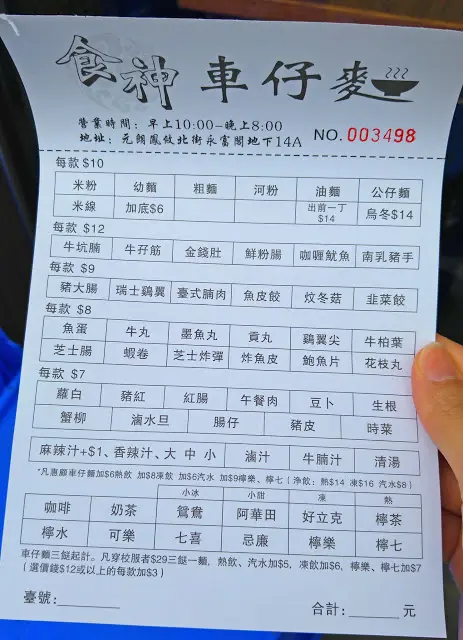 食神 車仔麥
營業時間：早上10:00-晚上8:00
地址：元朗鳳攸北街永富閣地下14A NO. 003498
每款 $10
米粉 幼麵 粗麵 河粉 油麵 公仔麵
米線 加底$6 出前一丁$14 烏冬$14
每款 $12
牛坑腩 牛孖筋 金錢肚 鮮粉腸 咖喱魷魚 南乳豬手
每款 $9
豬大腸 瑞士鷄翼 臺式腩肉 魚皮餃 炆冬菇 韭菜餃
每款 $8
魚蛋 牛丸 墨魚丸 貢丸 鷄翼尖 牛柏葉
芝士腸 蝦卷 芝士炸彈 炸魚皮 鮑魚片 花枝丸
每款 $7
蘿白 豬紅 紅腸 午餐肉 豆卜 生根
蟹柳 滷水旦 腸仔 豬皮 時菜
麻辣汁+$1、香辣汁、大 中 小 滷汁 牛腩汁 清湯
*凡惠顧車仔麵加$6熱飲 加$8凍飲 加$6汽水 加$9檸樂、檸七（淨飲：熱$14 凍$16 汽水$8）
小冰 小甜 凍 熱
咖啡 奶茶 鴛鴦 阿華田 好立克 檸茶
檸水 可樂 七喜 忌廉 檸樂 檸七
車仔麵三餸起計。凡穿校服者$29三餸一麵，熱飲、汽水加$5、凍飲加$6、檸樂、檸七加$7
（選價錢$12或以上的每款加$3）
臺號：______ 合計：______ 元